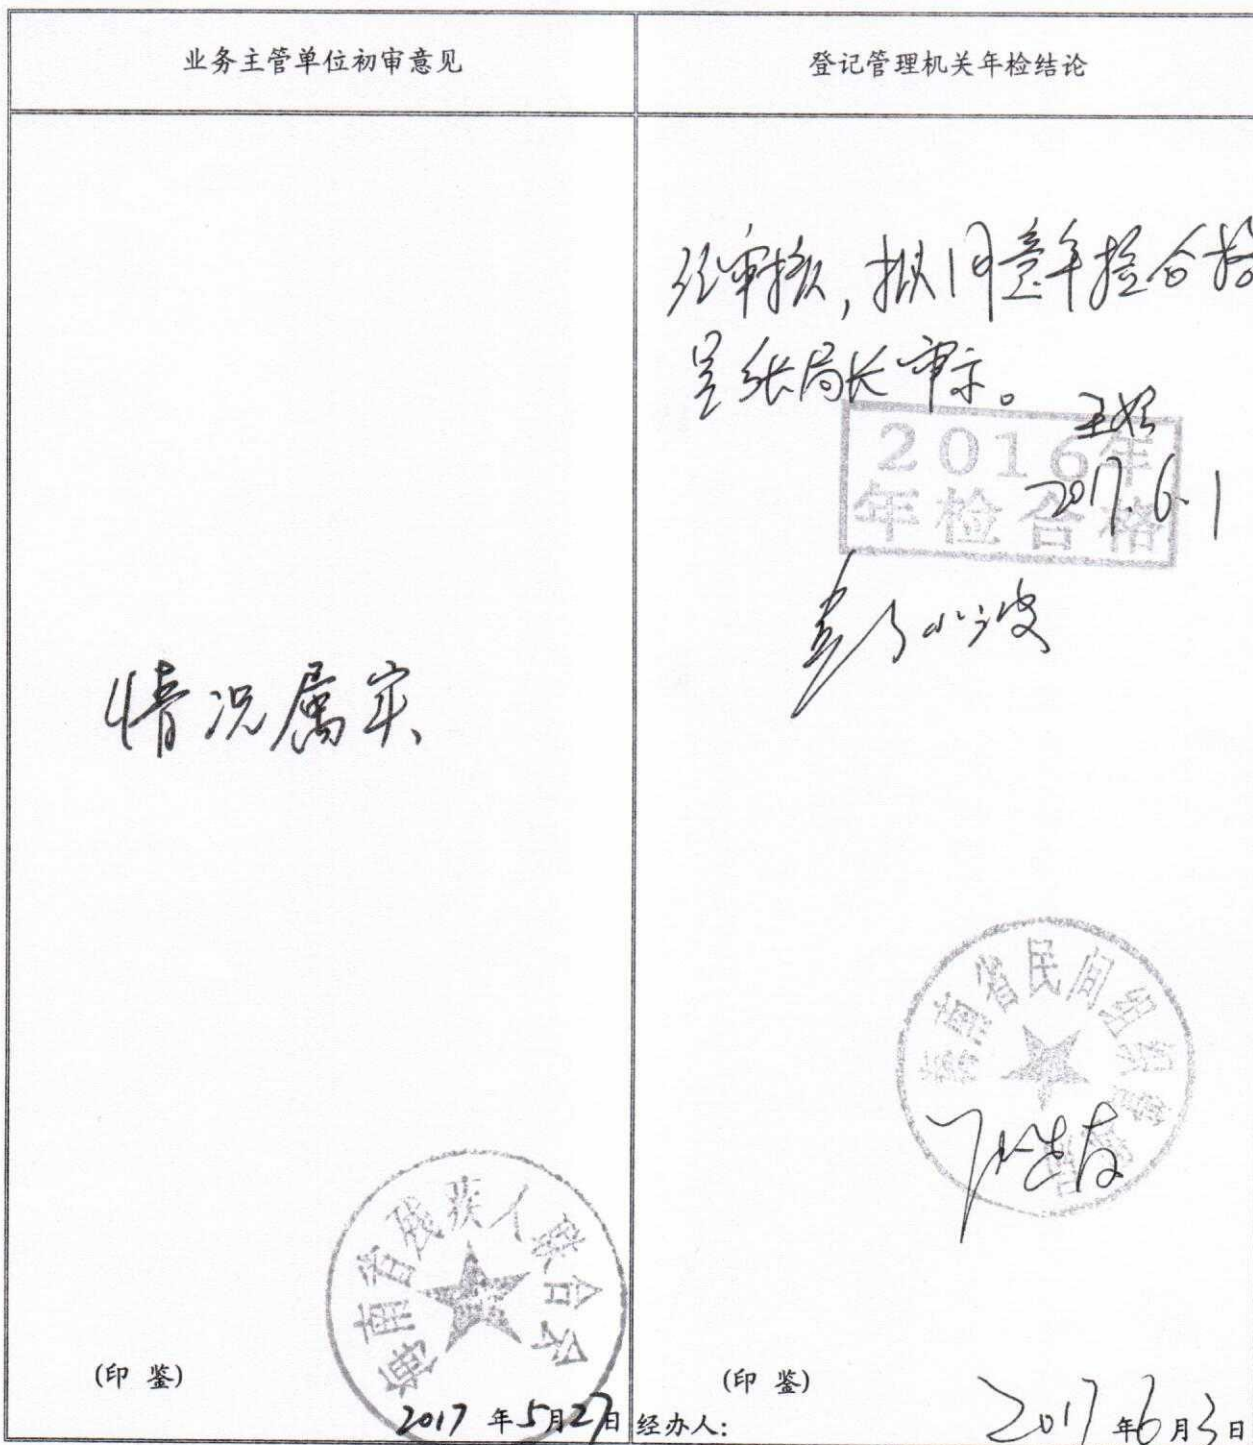 业务主管单位初审意见
登记管理机关年检结论
情况属实
海南省残疾人联合会
(印 鉴)
2017 年 5 月 27 日
经审核，拟同意年检合格
呈张局长审示。
2016年
年检合格
2017.6.1
彭小波
海南省民间组织管理局
(印 鉴)
经办人:
2017 年 6 月 3 日